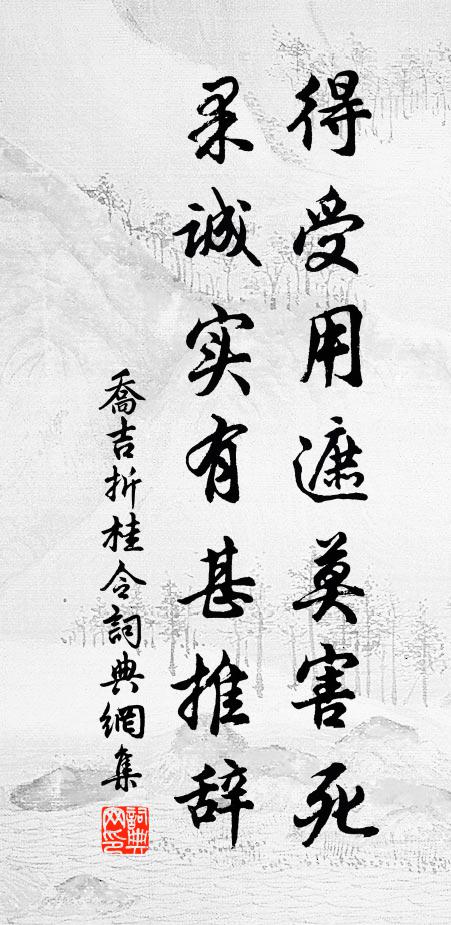 得受用遮莫害死
果诚实有甚推辞
喬吉折桂令詞典網集
詞典网印